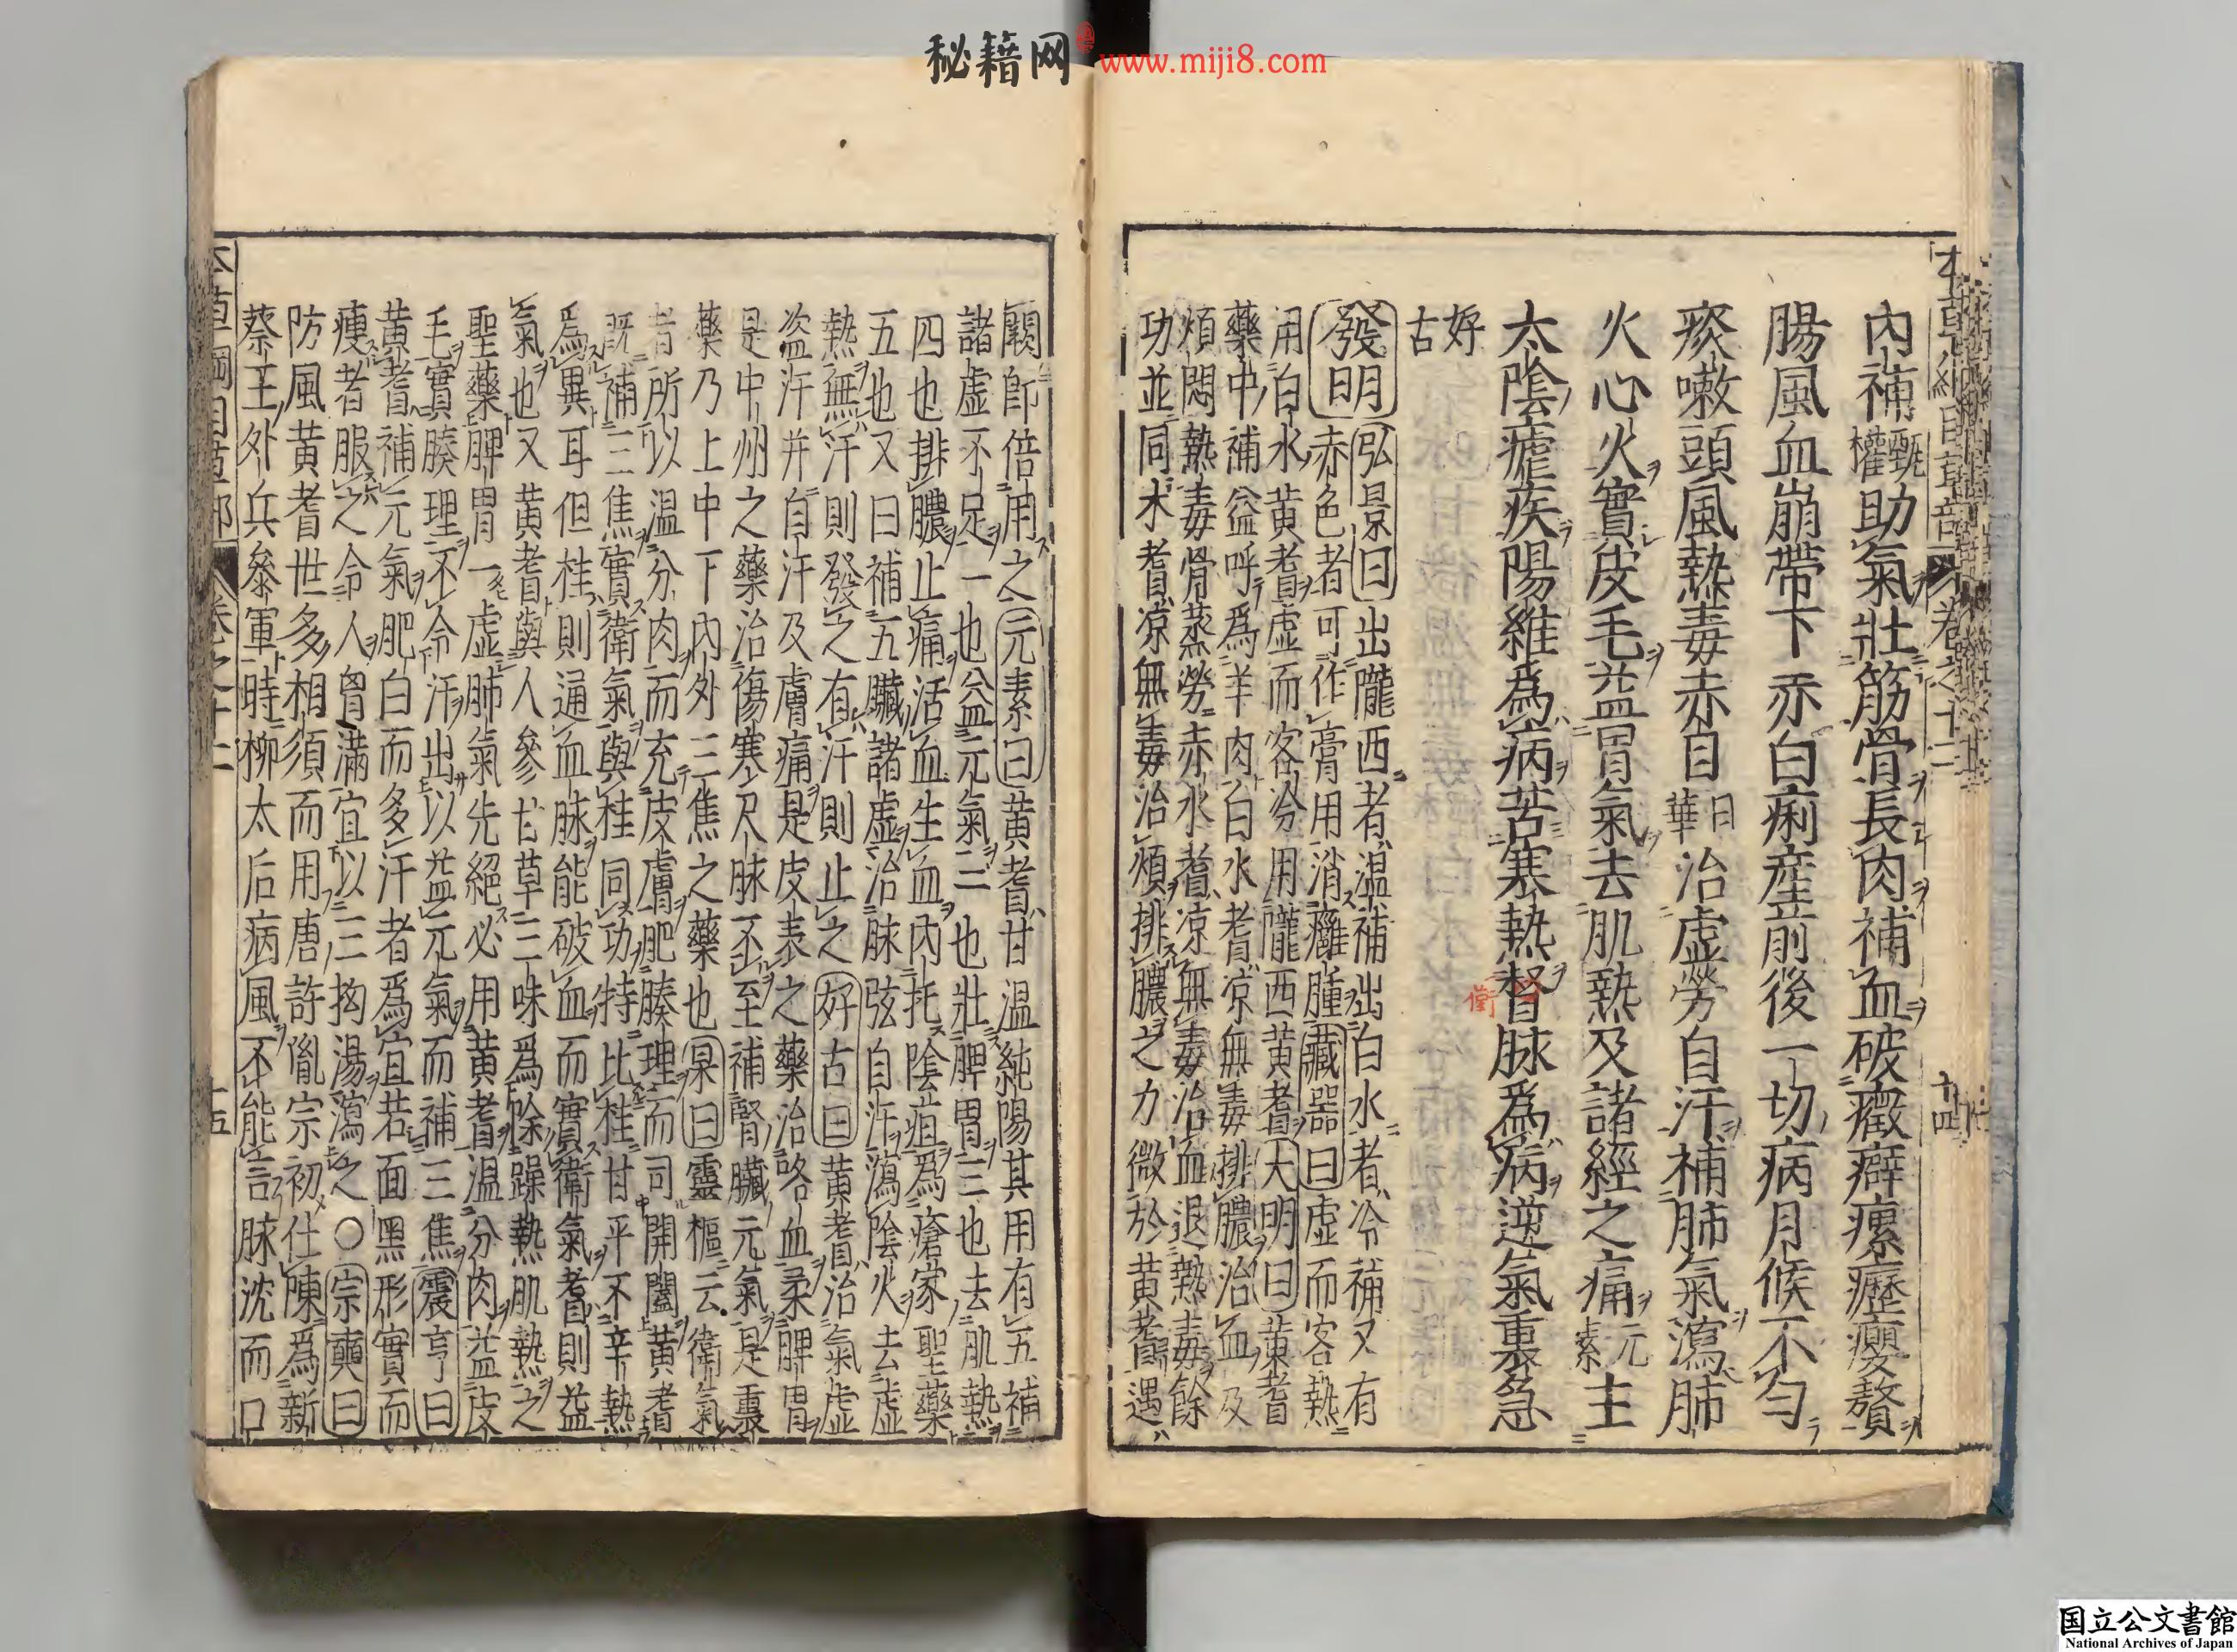 秘籍网 www.miji8.com
內補甄權助氣壯筋骨長肉補血破癥癖瘰癧癭贅
腸風血崩帶下赤白痢産前後一切病月候不匀
痰嗽頭風熱毒赤目日華治虛勞自汗補肺氣瀉肺
火心火實皮毛益胃氣去肌熱及諸經之痛元素主
太隂瘧疾陽維爲病苦寒熱督脉爲病逆氣裏急
好古
衝
發明弘景曰出隴西者温補出白水者冷補又有
赤色者可作膏用消癰腫藏器曰虛而客熱
用白水黄耆虛而客冷用隴西黄耆大明曰黄耆
藥中補益呼爲羊肉白水耆凉無毒排膿治血及
煩悶熱毒骨蒸勞赤水耆凉無毒治血退熱毒餘
功並同木耆凉無毒治煩排膿之力微於黄耆遇
闕卽倍用之元素曰黄耆甘温純陽其用有五補
諸虛不足一也益元氣二也壯脾胃三也去肌熱
四也排膿止痛活血生血內托隂疽爲瘡家聖藥
五也又曰補五臟諸虛治脉弦自汗瀉隂火去虛
熱無汗則發之有汗則止之好古曰黄耆治氣虛
盗汗并自汗及膚痛是皮表之藥治咯血柔脾胃
是中州之藥治傷寒尺脉不至補腎臟元氣是裏
藥乃上中下內外三焦之藥也杲曰靈樞云衛氣
者所以温分肉而充皮膚肥腠理而司開闔黄耆
既補三焦實衛氣與桂同功特比桂甘平不辛熱
爲異耳但桂則通血脉能破血而實衛氣耆則益
氣也又黄耆與人參甘草三味爲除躁熱肌熱之
聖藥脾胃一虛肺氣先絕必用黄耆温分肉益皮
毛實腠理不令汗出以益元氣而補三焦震亨曰
黄耆補元氣肥白而多汗者爲宜若面黑形實而
瘦者服之令人胷滿宜以三拗湯瀉之○宗奭曰
防風黄耆世多相須而用唐許胤宗初仕陳爲新
蔡王外兵參軍時柳太后病風不能言脉沈而口
卷之十二
十五
国立公文書館
National Archives of Japan